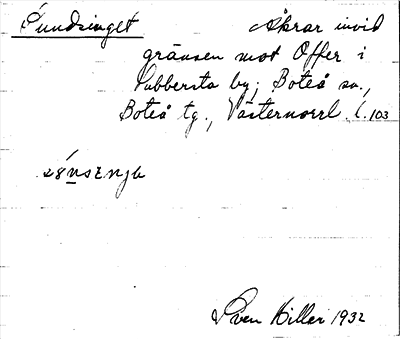 Sundsinget Åkrar invid
gränsen mot Offer i
Subbersta by; Boteå sn.,
Boteå tg., Västernorrl. l. 103
Sven Hillert 1932